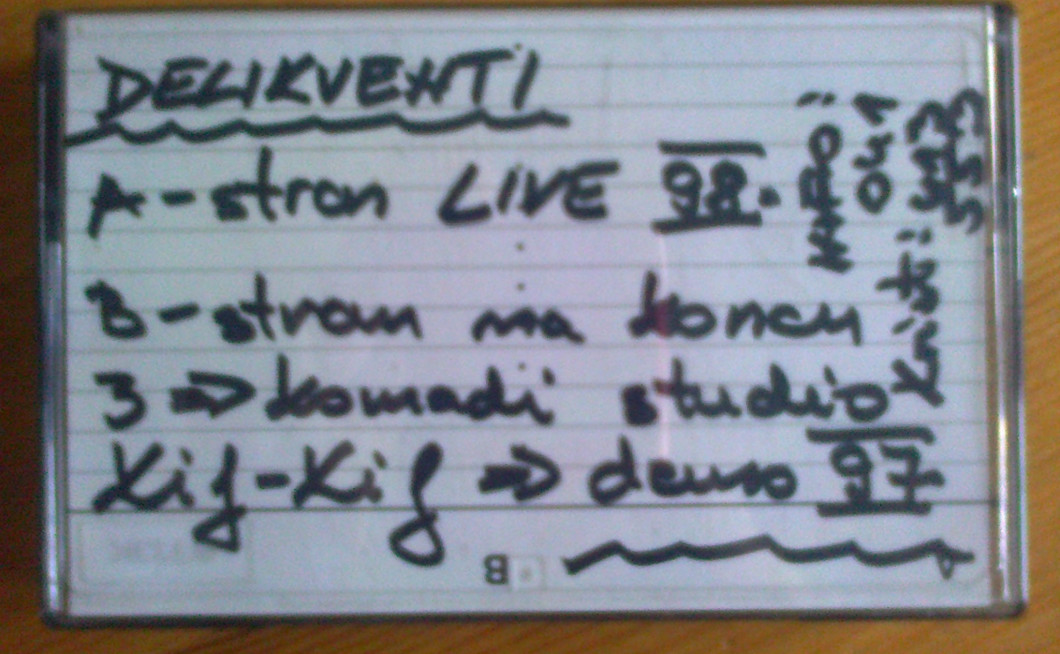 DELIKVENTI
A-stran LIVE 98.
B-stran na koncu
3 ⇒ komadi studio
Kif-Kif ⇒ demo 97.
INFO:
041
493
553
Kristi:
B